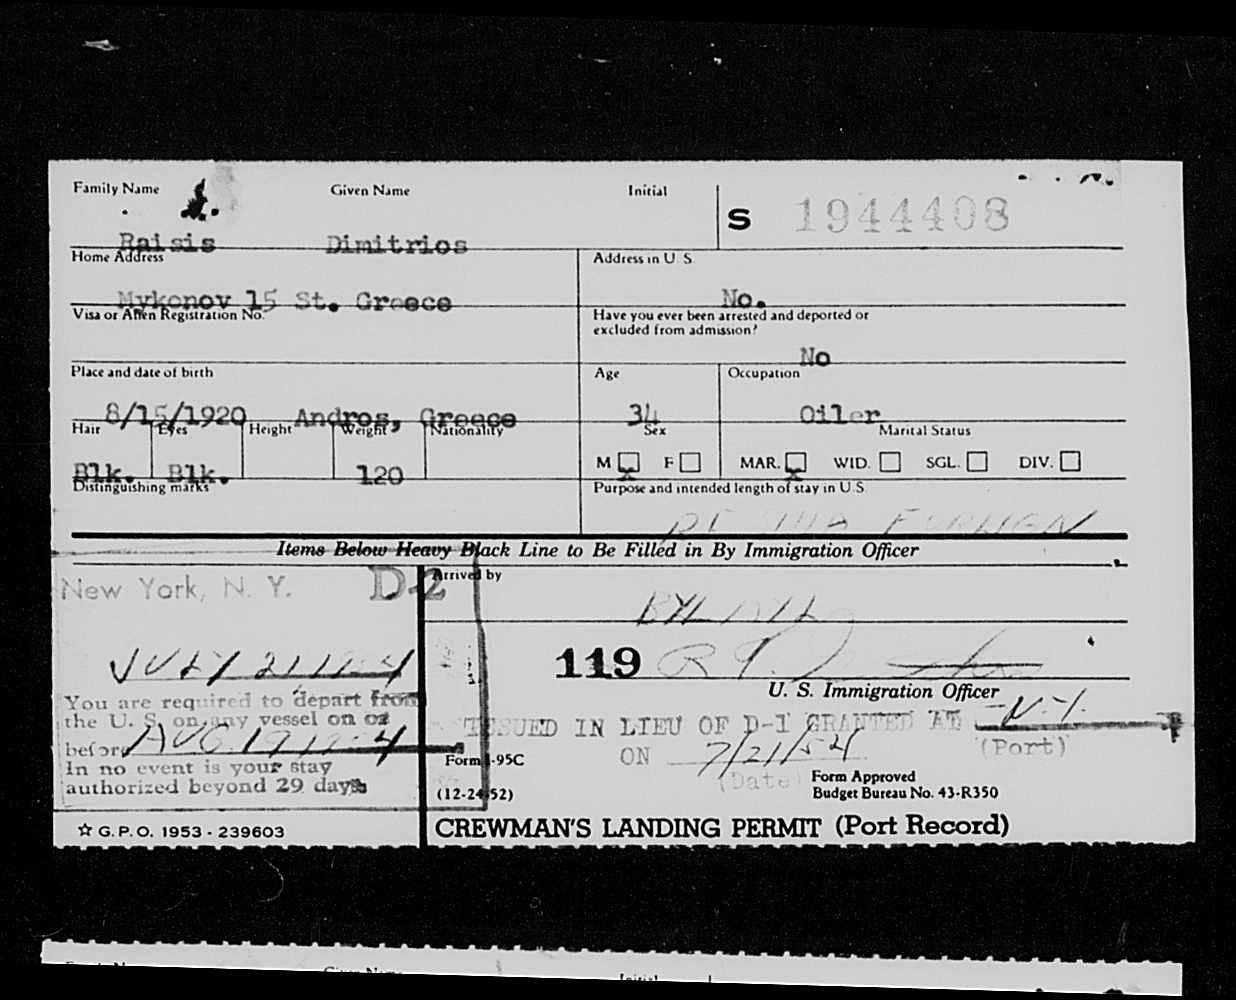 Family Name Given Name Initial
S 1944408
Raisis Dimitrios
Home Address Address in U. S.
Mykonov 15 St. Greece No.
Visa or Alien Registration No. Have you ever been arrested and deported or
excluded from admission?
No
Place and date of birth Age Occupation
8/15/1920 Andros, Greece 34 Oiler
Hair Eyes Height Weight Nationality Sex Marital Status
Blk. Blk. 120 M F MAR. WID. SGL. DIV.
Distinguishing marks Purpose and intended length of stay in U.S.
Items Below Heavy Black Line to Be Filled in By Immigration Officer
New York, N. Y. D-2 Arrived by
JULY 21
119
U. S. Immigration Officer
You are required to depart from
the U. S. on any vessel on or
before AUG. 19
In no event is your stay
authorized beyond 29 days
ISSUED IN LIEU OF D-1 GRANTED AT N.Y.
(Port)
ON 7/21/54
(Date)
Form I-95C
(12-24-52)
Form Approved
Budget Bureau No. 43-R350
☆ G. P. O. 1953 - 239603
CREWMAN'S LANDING PERMIT (Port Record)
Initial